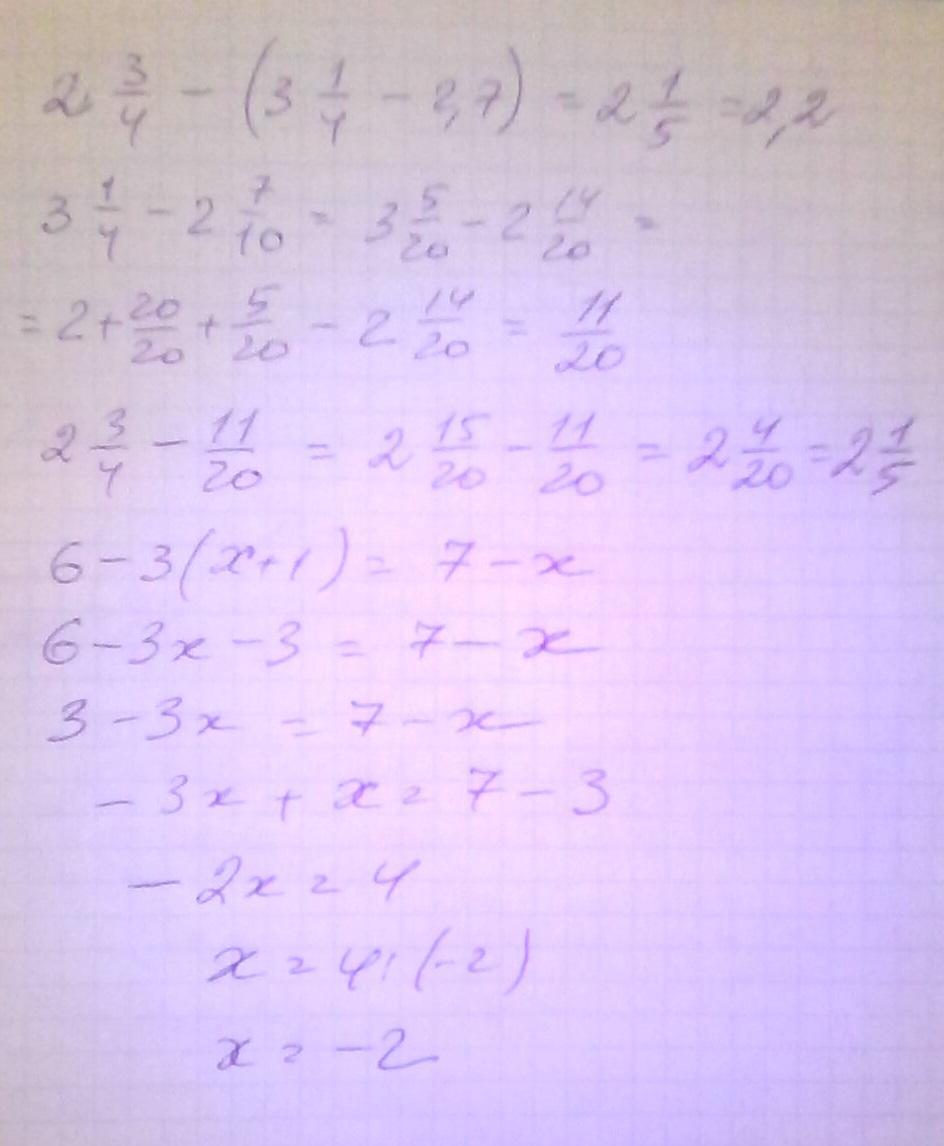 2 3/4 - (3 1/4 - 2,7) = 2 1/5 = 2,2
3 1/4 - 2 7/10 = 3 5/20 - 2 14/20 =
= 2 + 20/20 + 5/20 - 2 14/20 = 11/20
2 3/4 - 11/20 = 2 15/20 - 11/20 = 2 4/20 = 2 1/5
6 - 3(x+1) = 7 - x
6 - 3x - 3 = 7 - x
3 - 3x = 7 - x
- 3x + x = 7 - 3
- 2x = 4
x = 4 : (-2)
x = -2